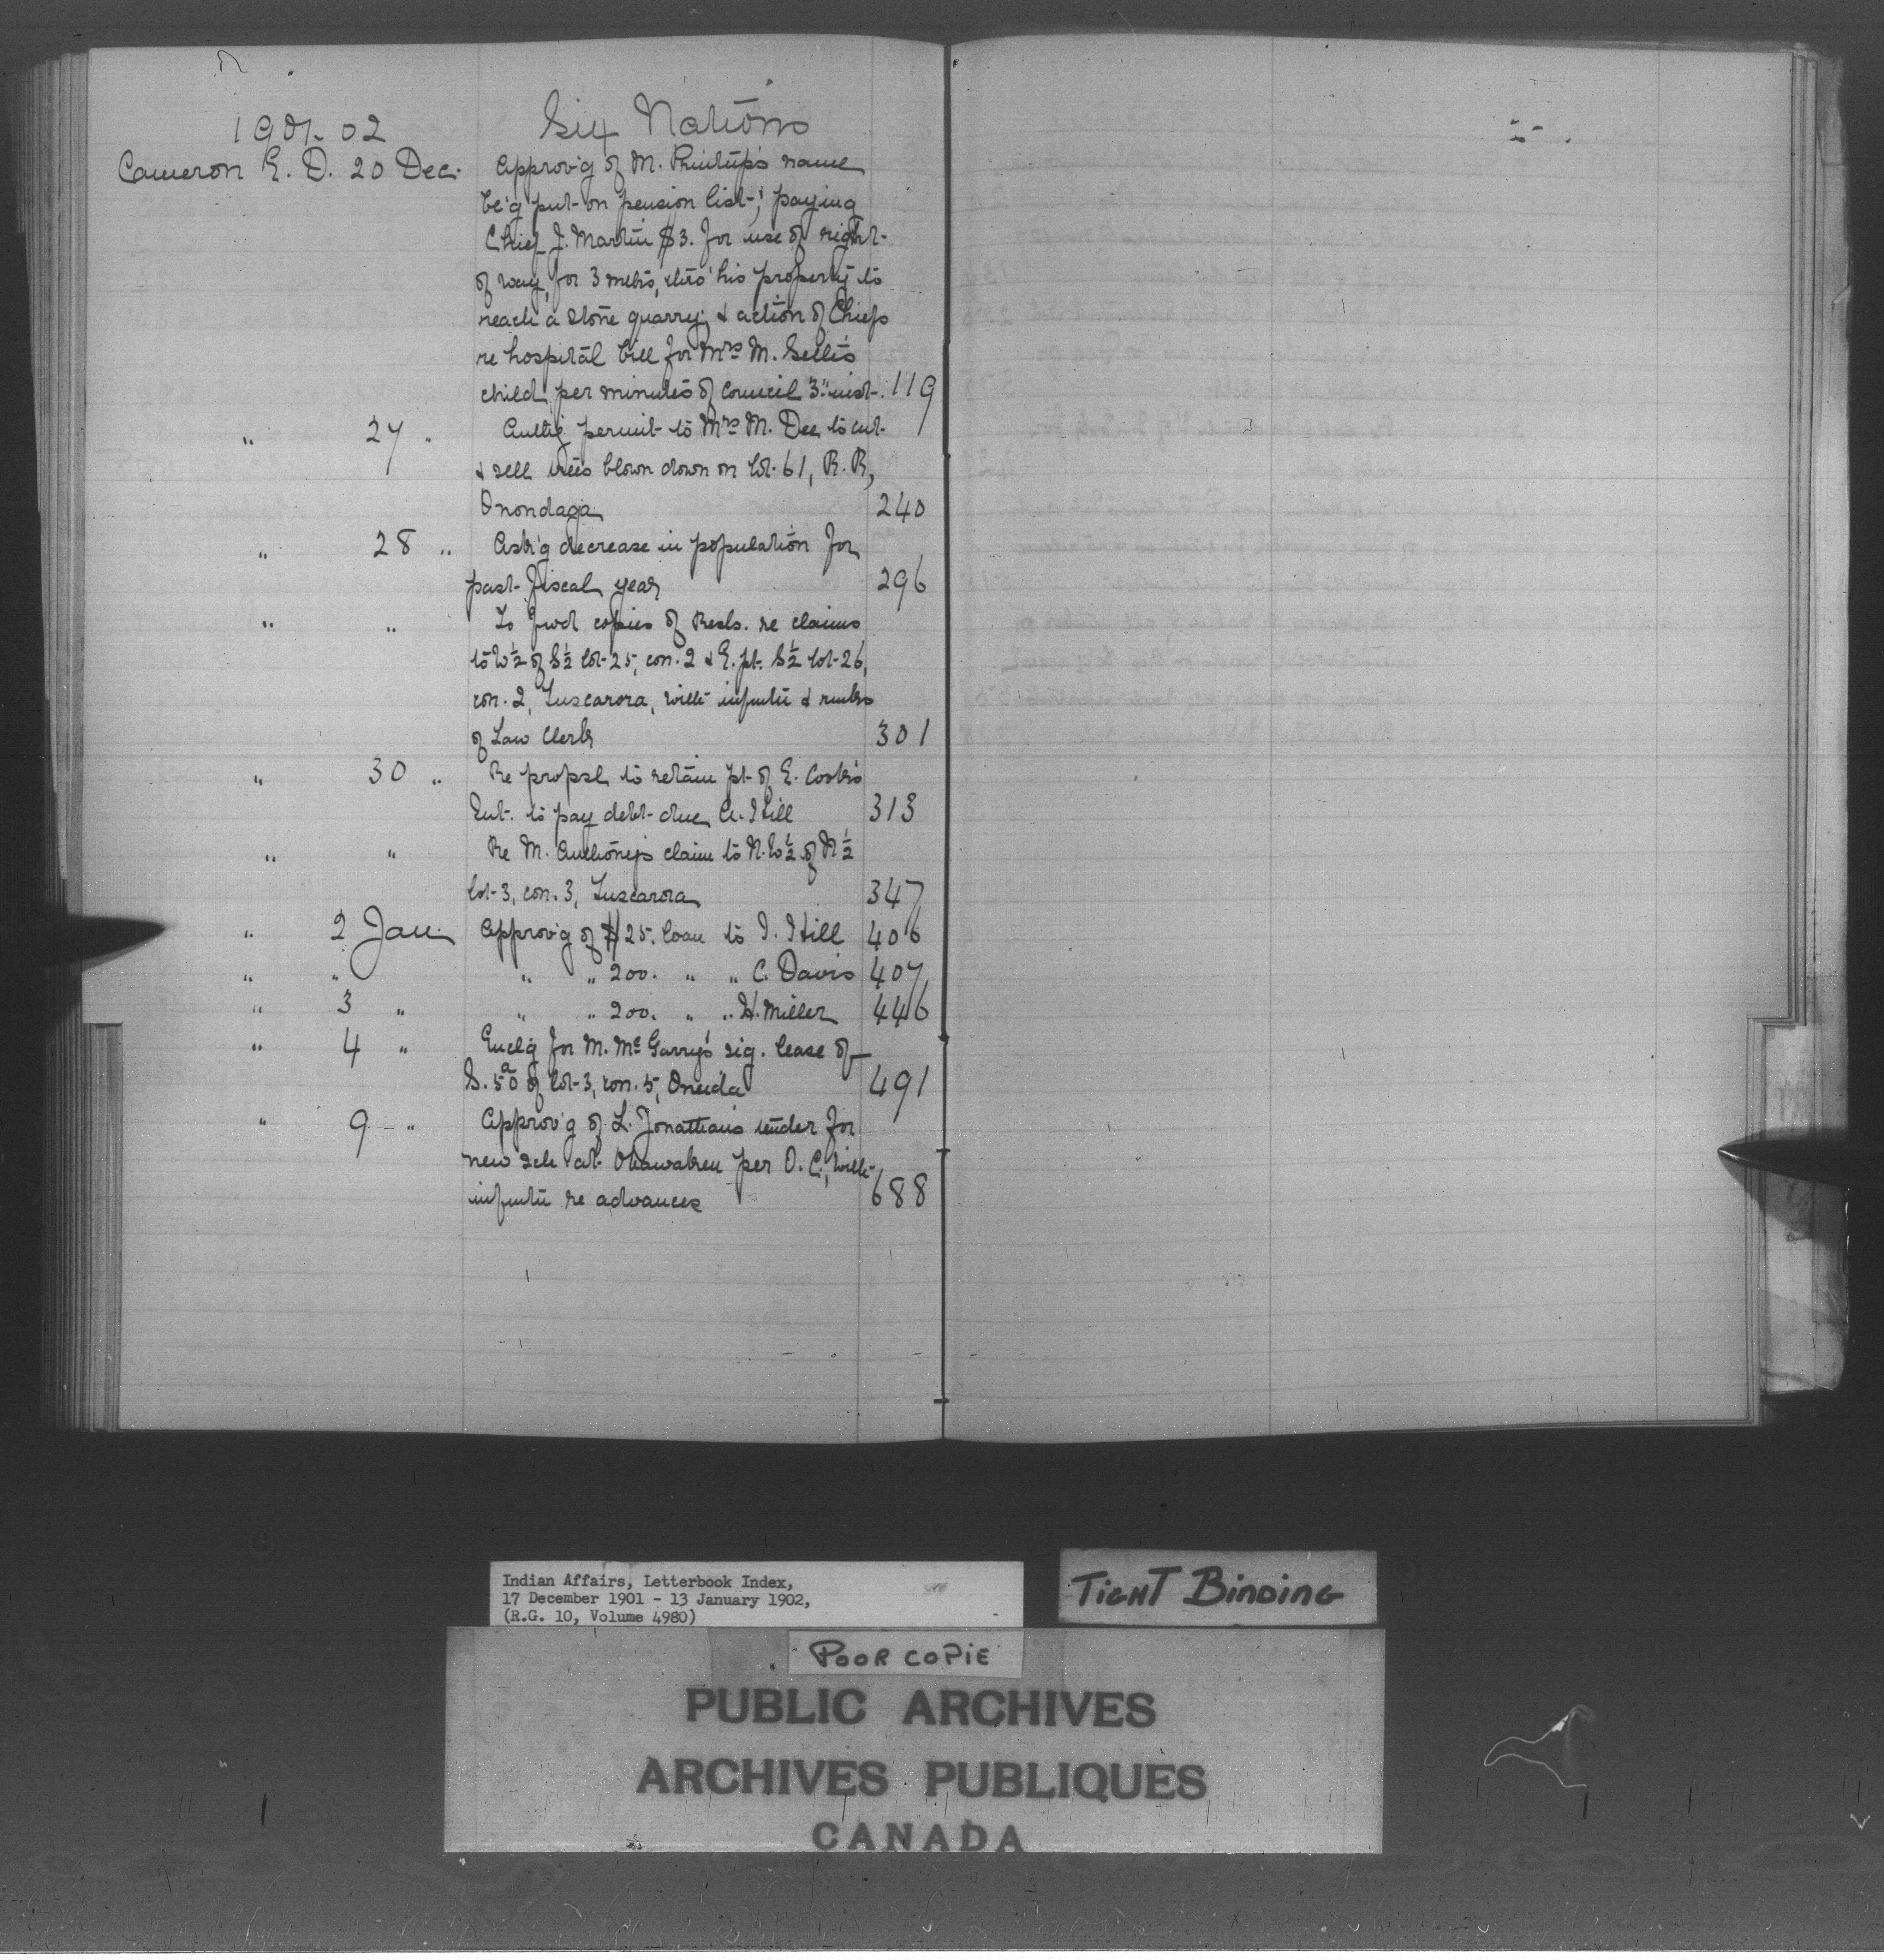 1901-02 Six Nations
Cameron E. D. 20 Dec. Approv'g of M. Phillip's name
be'g put on pension list; paying
Chief J. Martin $3. for use of right-
of way, for 3 mths, thro' his property to
reach a stone quarry; & action of Chiefs
re hospital bill for Mrs M. Sell's
child per minutes of council 3" inst. 119
" 27 " Auth'g permit to Mrs M. Dee to cut
& sell trees blown down on lot 61, R. R,
Onondaga 240
" 28 " Ask'g decrease in population for
past fiscal year 296
" " To fwd copies of Resls. re claims
to W ½ of S ½ lot 25, con. 2 & E. pt. S ½ lot 26,
con. 2, Tuscarora, with infmtn & rmks
of Law Clerk 301
" 30 " Re propsl to retain pt of E. Cook's
Int. to pay debt due A. Hill 313
" " Re M. Anthony's claim to N. W ½ of N ½
lot 3, con. 3, Tuscarora 347
" 2 Jan. Approv'g of $25. loan to I. Hill 406
" " " " 200. " " C. Davis 407
" 3 " " " 200. " " H. Miller 446
" 4 " Encl'g for M. McGarry's sig. lease of
S. 50 a of lot 3, con. 5, Oneida 491
" 9 " Approv'g of L. Jonathan's tender for
new sch at Ohsweken per O. C., with
infmtn re advances 688
Indian Affairs, Letterbook Index,
17 December 1901 - 13 January 1902,
(R.G. 10, Volume 4980)
TIGHT BINDING
POOR COPIE
PUBLIC ARCHIVES
ARCHIVES PUBLIQUES
CANADA